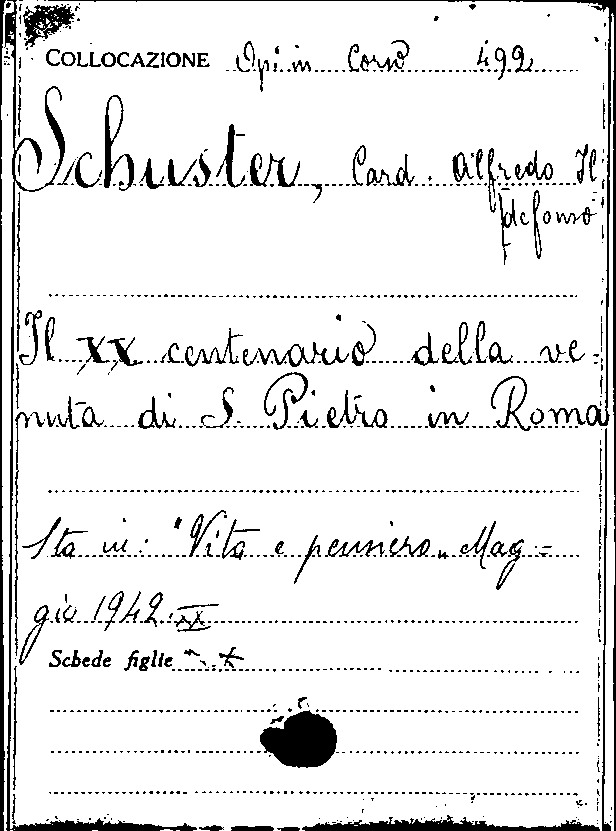 COLLOCAZIONE Opi. in Corso 499
Schuster, Card. Alfredo Il
defonso
Il XX centenario della ve-
nuta di S. Pietro in Roma
Sta in: "Vita e pensiero" Mag=
gio 1942. XX
Schede figlie